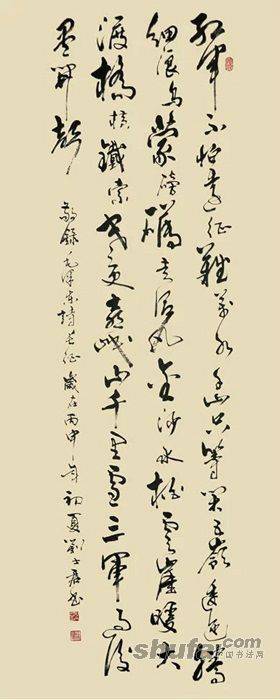 紅軍不怕遠征難萬水千山只等閑五嶺逶迤騰
細浪烏蒙磅礴走泥丸金沙水拍雲崖暖大
渡橋橫鐵索寒更喜岷山千里雪三軍過後
盡開顏
敬錄毛澤東詩長征 歲在丙申年初夏劉士書
shufa.com
中国书法网